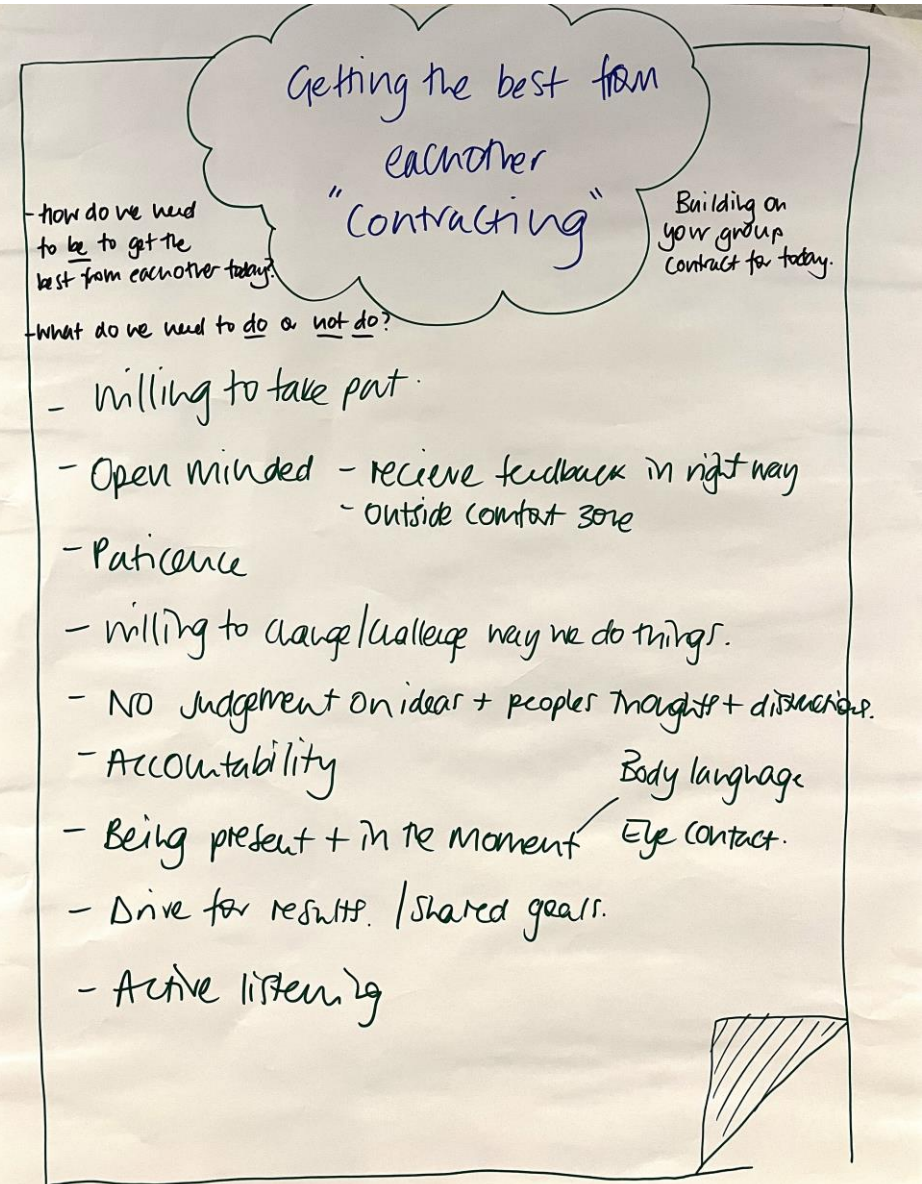 Getting the best from
eachother
"Contracting"
- how do we need
to be to get the
best from eachother today?
Building on
your group
contract for today.
- What do we need to do or not do?
- willing to take part.
- Open minded - recieve feedback in right way
- outside comfort zone
- Paticence
- willing to change/challenge way we do things.
- No Judgement on ideas + peoples thoughts +
- Accountability
- Being present + in the moment
Body language
Eye contact.
- Drive for results. / shared goals.
- Active listening